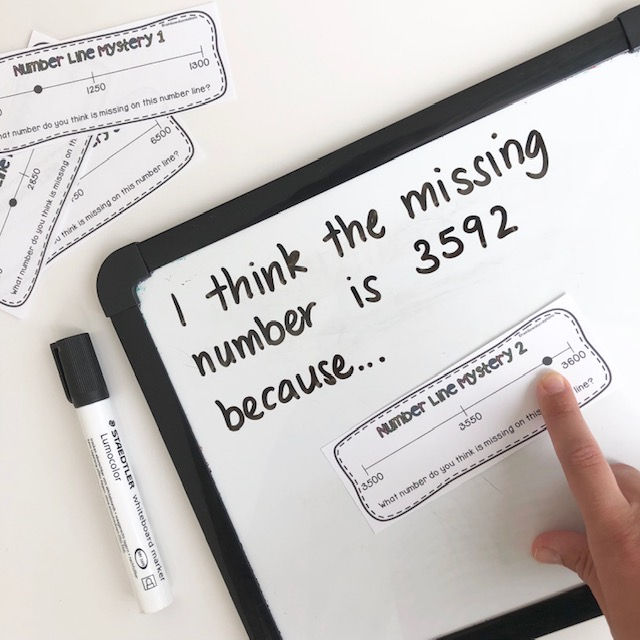 Number Line Mystery 1
1250
1300
number do you think is missing on this number line?
6500
think is missing on this number line?
2850
What number do you think is missing on th
I think the missing
number is 3592
because...
Number Line Mystery 2
3500
3550
3600
What number do you think is missing on this
line?
STAEDTLER
Lumocolor
whiteboard marker